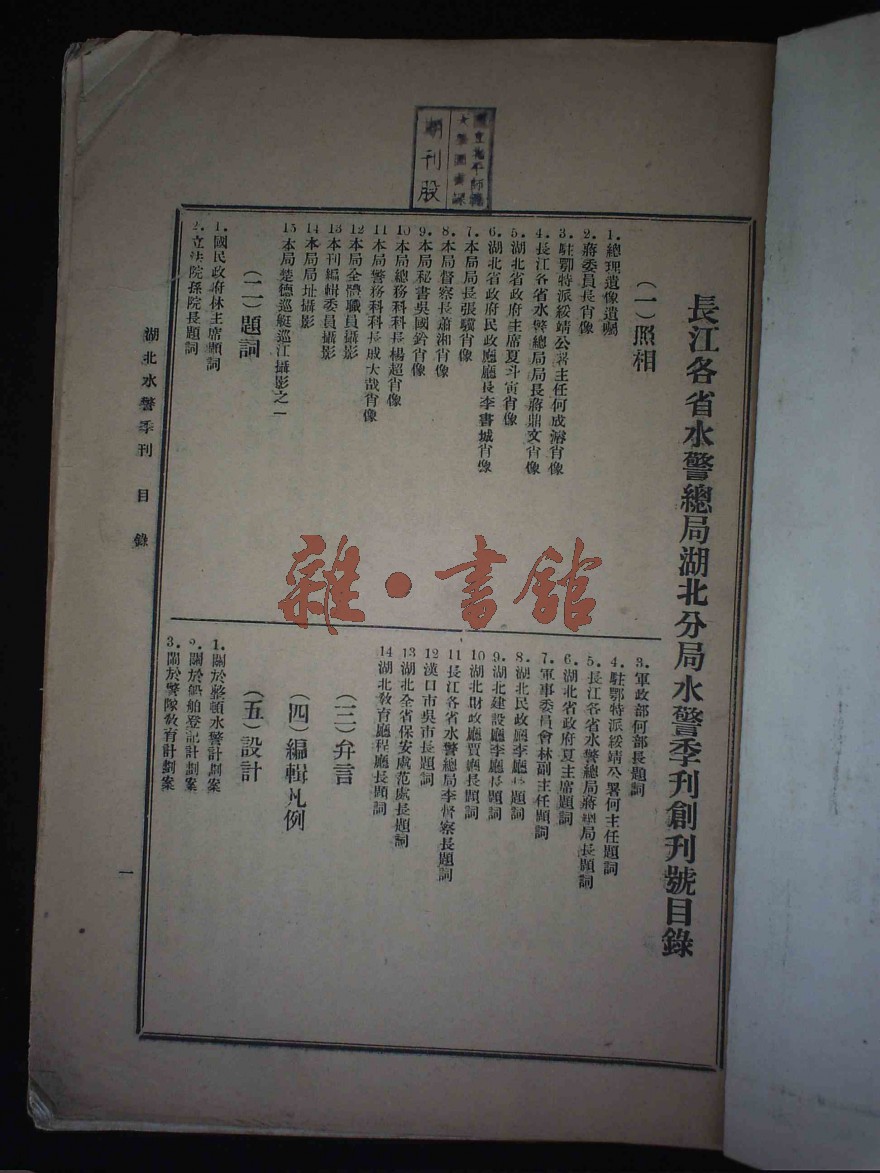 長江各省水警總局湖北分局水警季刊創刊號目錄
（一）照相
1.總理遺像遺囑
2.蔣委員長肖像
3.駐鄂特派綏靖公署主任何成濬肖像
4.長江各省水警總局局長蔣鼎文肖像
5.湖北省政府主席夏斗寅肖像
6.湖北省政府民政廳廳長李書城肖像
7.本局局長張驥肖像
8.本局督察長蕭湘肖像
9.本局秘書吳國鈐肖像
10本局總務科科長楊超肖像
11本局警務科科長戚大哉肖像
12本局全體職員攝影
13本刊編輯委員攝影
14本局局址攝影
15本局楚德巡艇巡江攝影之一
（二）題詞
1.國民政府林主席題詞
2.立法院孫院長題詞
3.軍政部何部長題詞
4.駐鄂特派綏靖公署何主任題詞
5.長江各省水警總局蔣總局長題詞
6.湖北省政府夏主席題詞
7.軍事委員會林副主任題詞
8.湖北民政廳李廳長題詞
9.湖北建設廳李廳長題詞
10湖北財政廳賈廳長題詞
11長江各省水警總局李督察長題詞
12漢口市吳市長題詞
13湖北全省保安處范處長題詞
14湖北教育廳程廳長題詞
（三）弁言
（四）編輯凡例
（五）設計
1.關於整頓水警計劃案
2.關於船舶登記計劃案
3.關於警隊教育計劃案
湖北水警季刊 目錄
一
期刊股
雜·書館